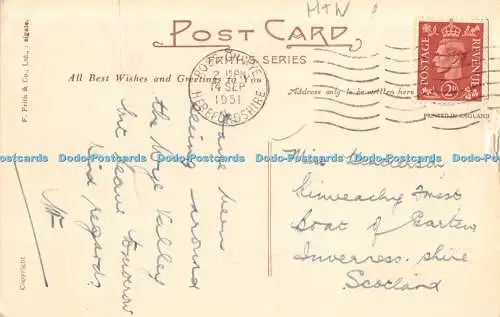 H+W
POST CARD
FRITH'S SERIES
All Best Wishes and Greetings to You
Address only to be written here
PRINTED IN ENGLAND
F. Frith & Co., Ltd., Reigate.
Copyright
ROSS-ON-WYE
2 15PM
14 SEP
1951
HEREFORDSHIRE
POSTAGE
REVENUE
2D
Have been
seeing around
the Wye Valley
but leave tomorrow
Kind regards
Miss Henderson
Kinveachy Forest
Boat of Garten
Inverness. shire
Scotland
Dodo-Postcards Dodo-Postcards Dodo-Postcards Dodo-Postcards Dodo-Postcards